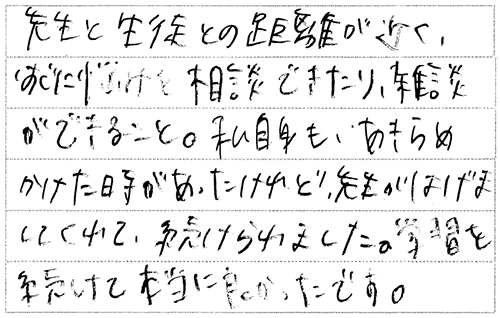 先生と生徒との距離が近く、
すぐに 相談できたり、雑談
ができること。私自身も、あきらめ
かけた時があったけれど、先生がはげま
してくれて、続けられました。学習を
続けて本当に良かったです。